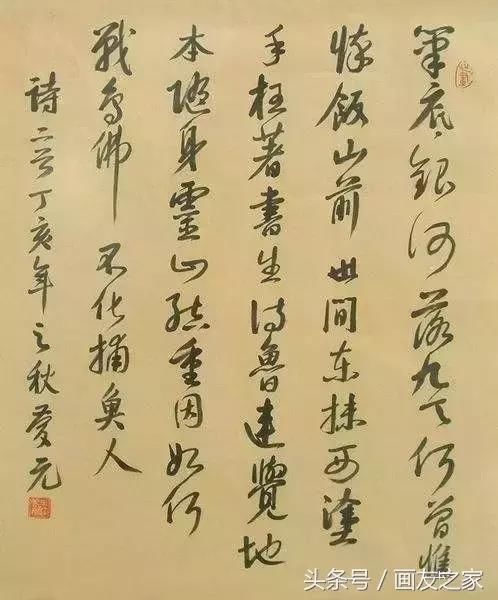 筆底銀河落九天何曾憔
悴飯山前世間東抹西塗
手枉著書生待魯連覺地
本隨身靈山結重因如何
戰鳥佛不化捕魚人
詩二首丁亥年之秋愛元
头条号/画友之家